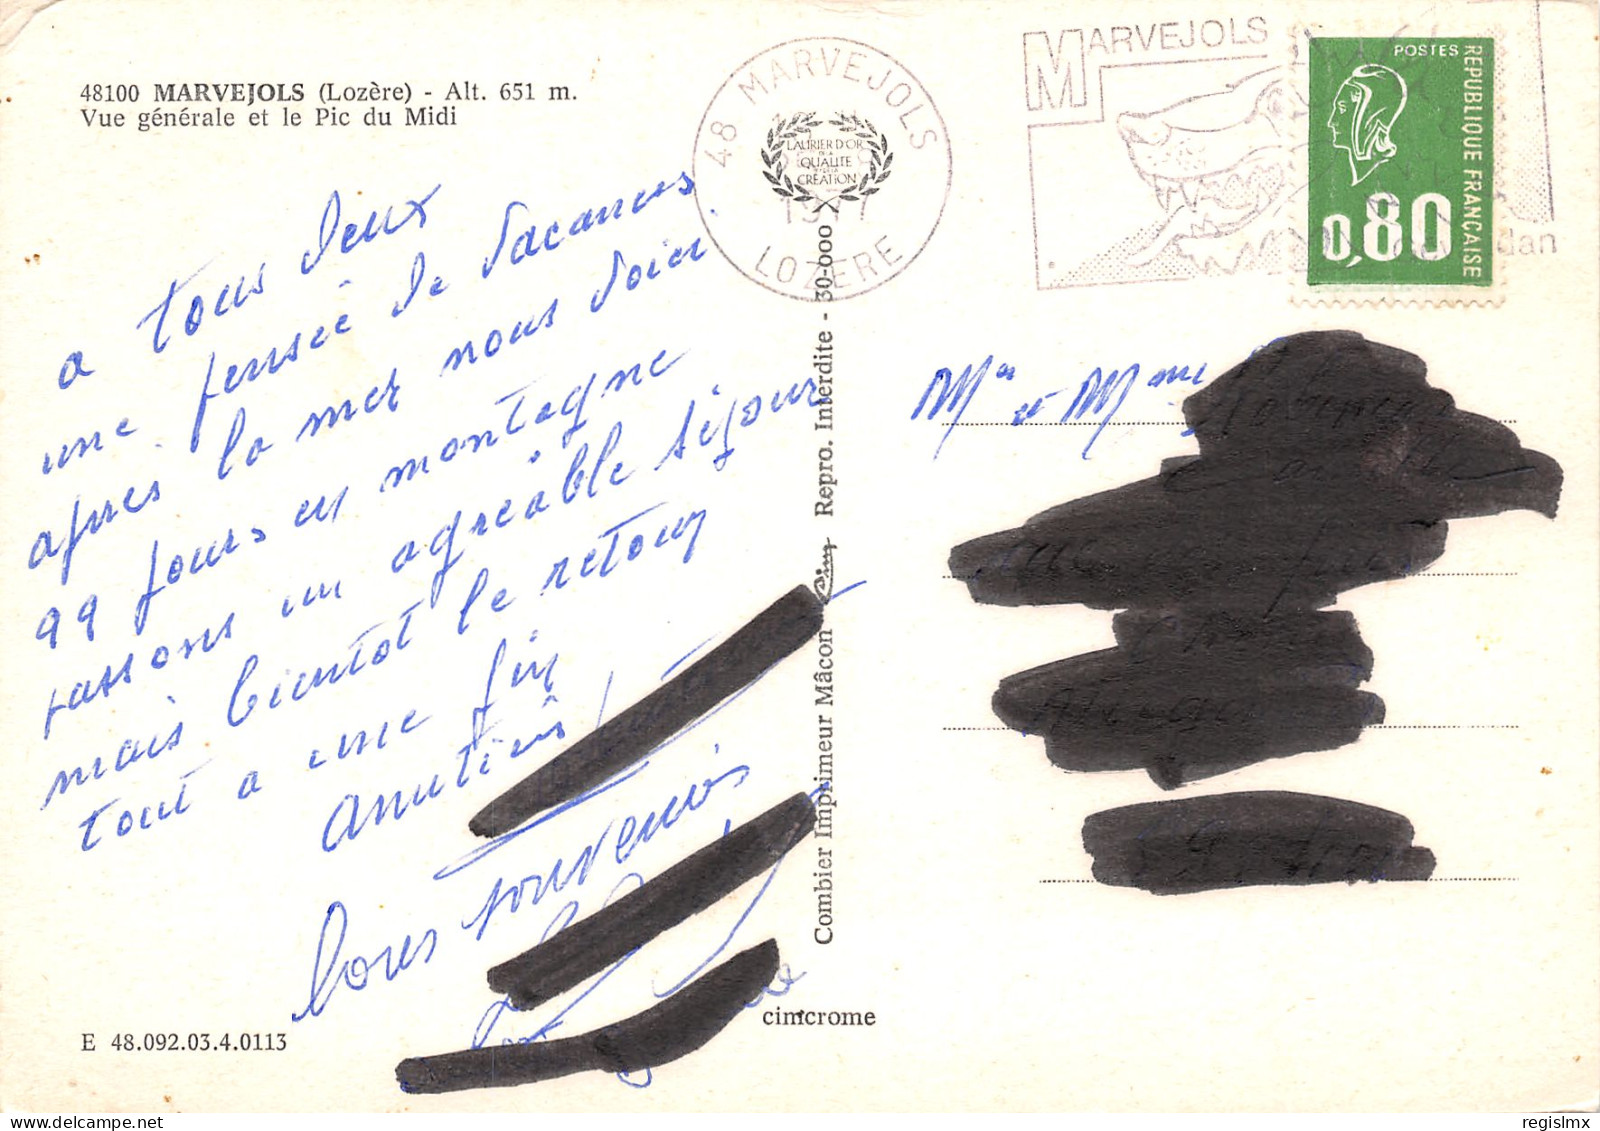 48100 MARVEJOLS (Lozère) - Alt. 651 m.
Vue générale et le Pic du Midi
a tous deux
une pensée de vacances
après la mer nous voici
99 jours en montagne
passons un agréable séjour
mais bientot le retour
tout a une fin
amitiés
bons souvenirs
E 48.092.03.4.0113
48 MARVEJOLS
1977
LOZERE
LAURIER D'OR
DE LA
QUALITE
CREATION
Combier Imprimeur Mâcon Cim Repro. Interdite - 30-0000
cimcrome
MARVEJOLS
POSTES
REPUBLIQUE FRANÇAISE
0,80
Mr et Mme
regislmx